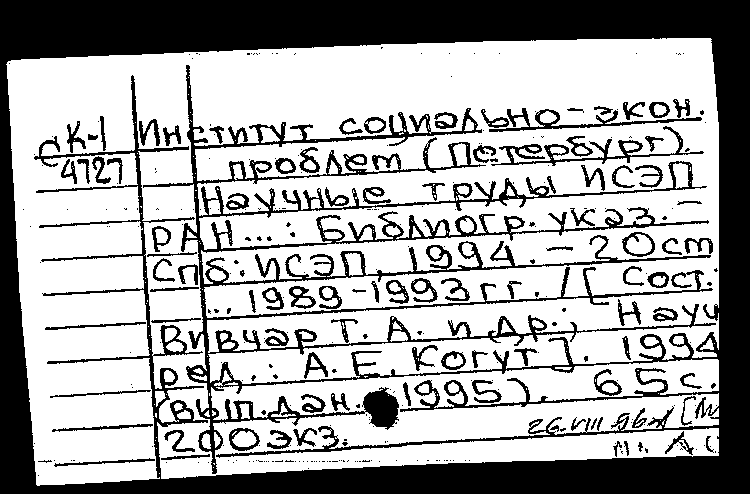 сК-1
4727
Институт социально-экон.
проблем (Петербург).
Научные труды ИСЭП
РАН...: Библиогр. указ. -
Спб: ИСЭП, 1994. - 20 cm
... 1989-1993 гг. / [Сост.:
Вивчар Т. А. и др.; Науч
ред.: А. Е. Когут]. 1994
(вып. дан. 1995). 65 с.
200 экз.
26.VIII.96